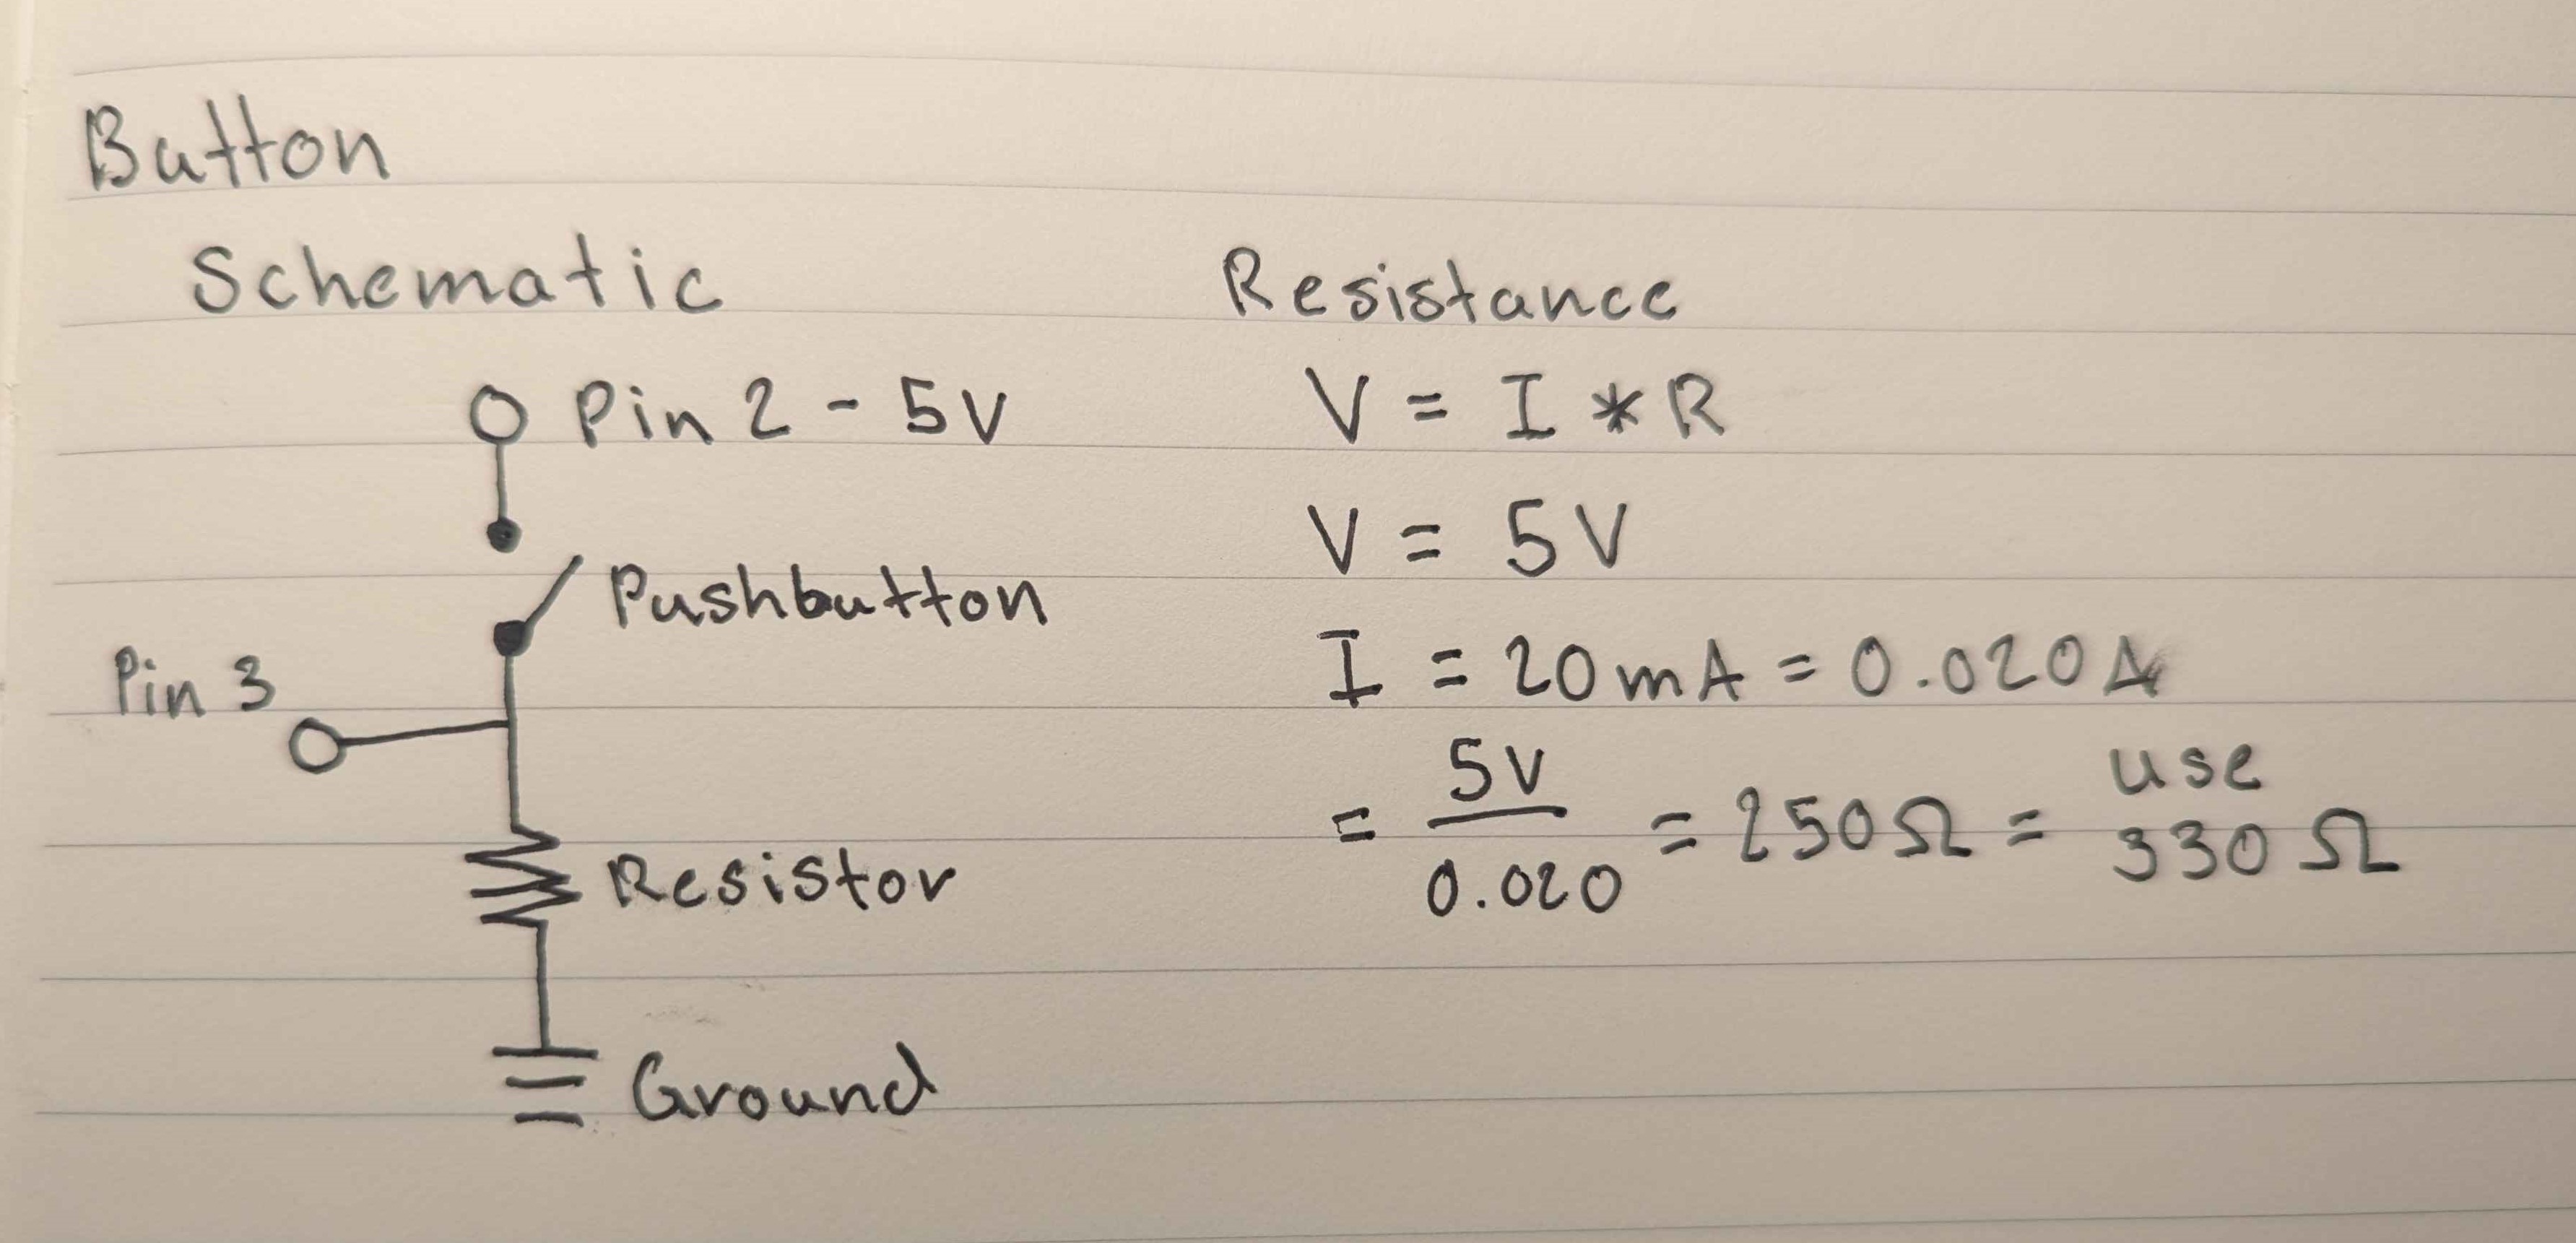 Button
Schematic
Pin 2 - 5V
Pushbutton
Pin 3
Resistor
Ground
Resistance
V = I * R
V = 5V
I = 20mA = 0.020A
= 5V / 0.020 = 250Ω = use 330Ω